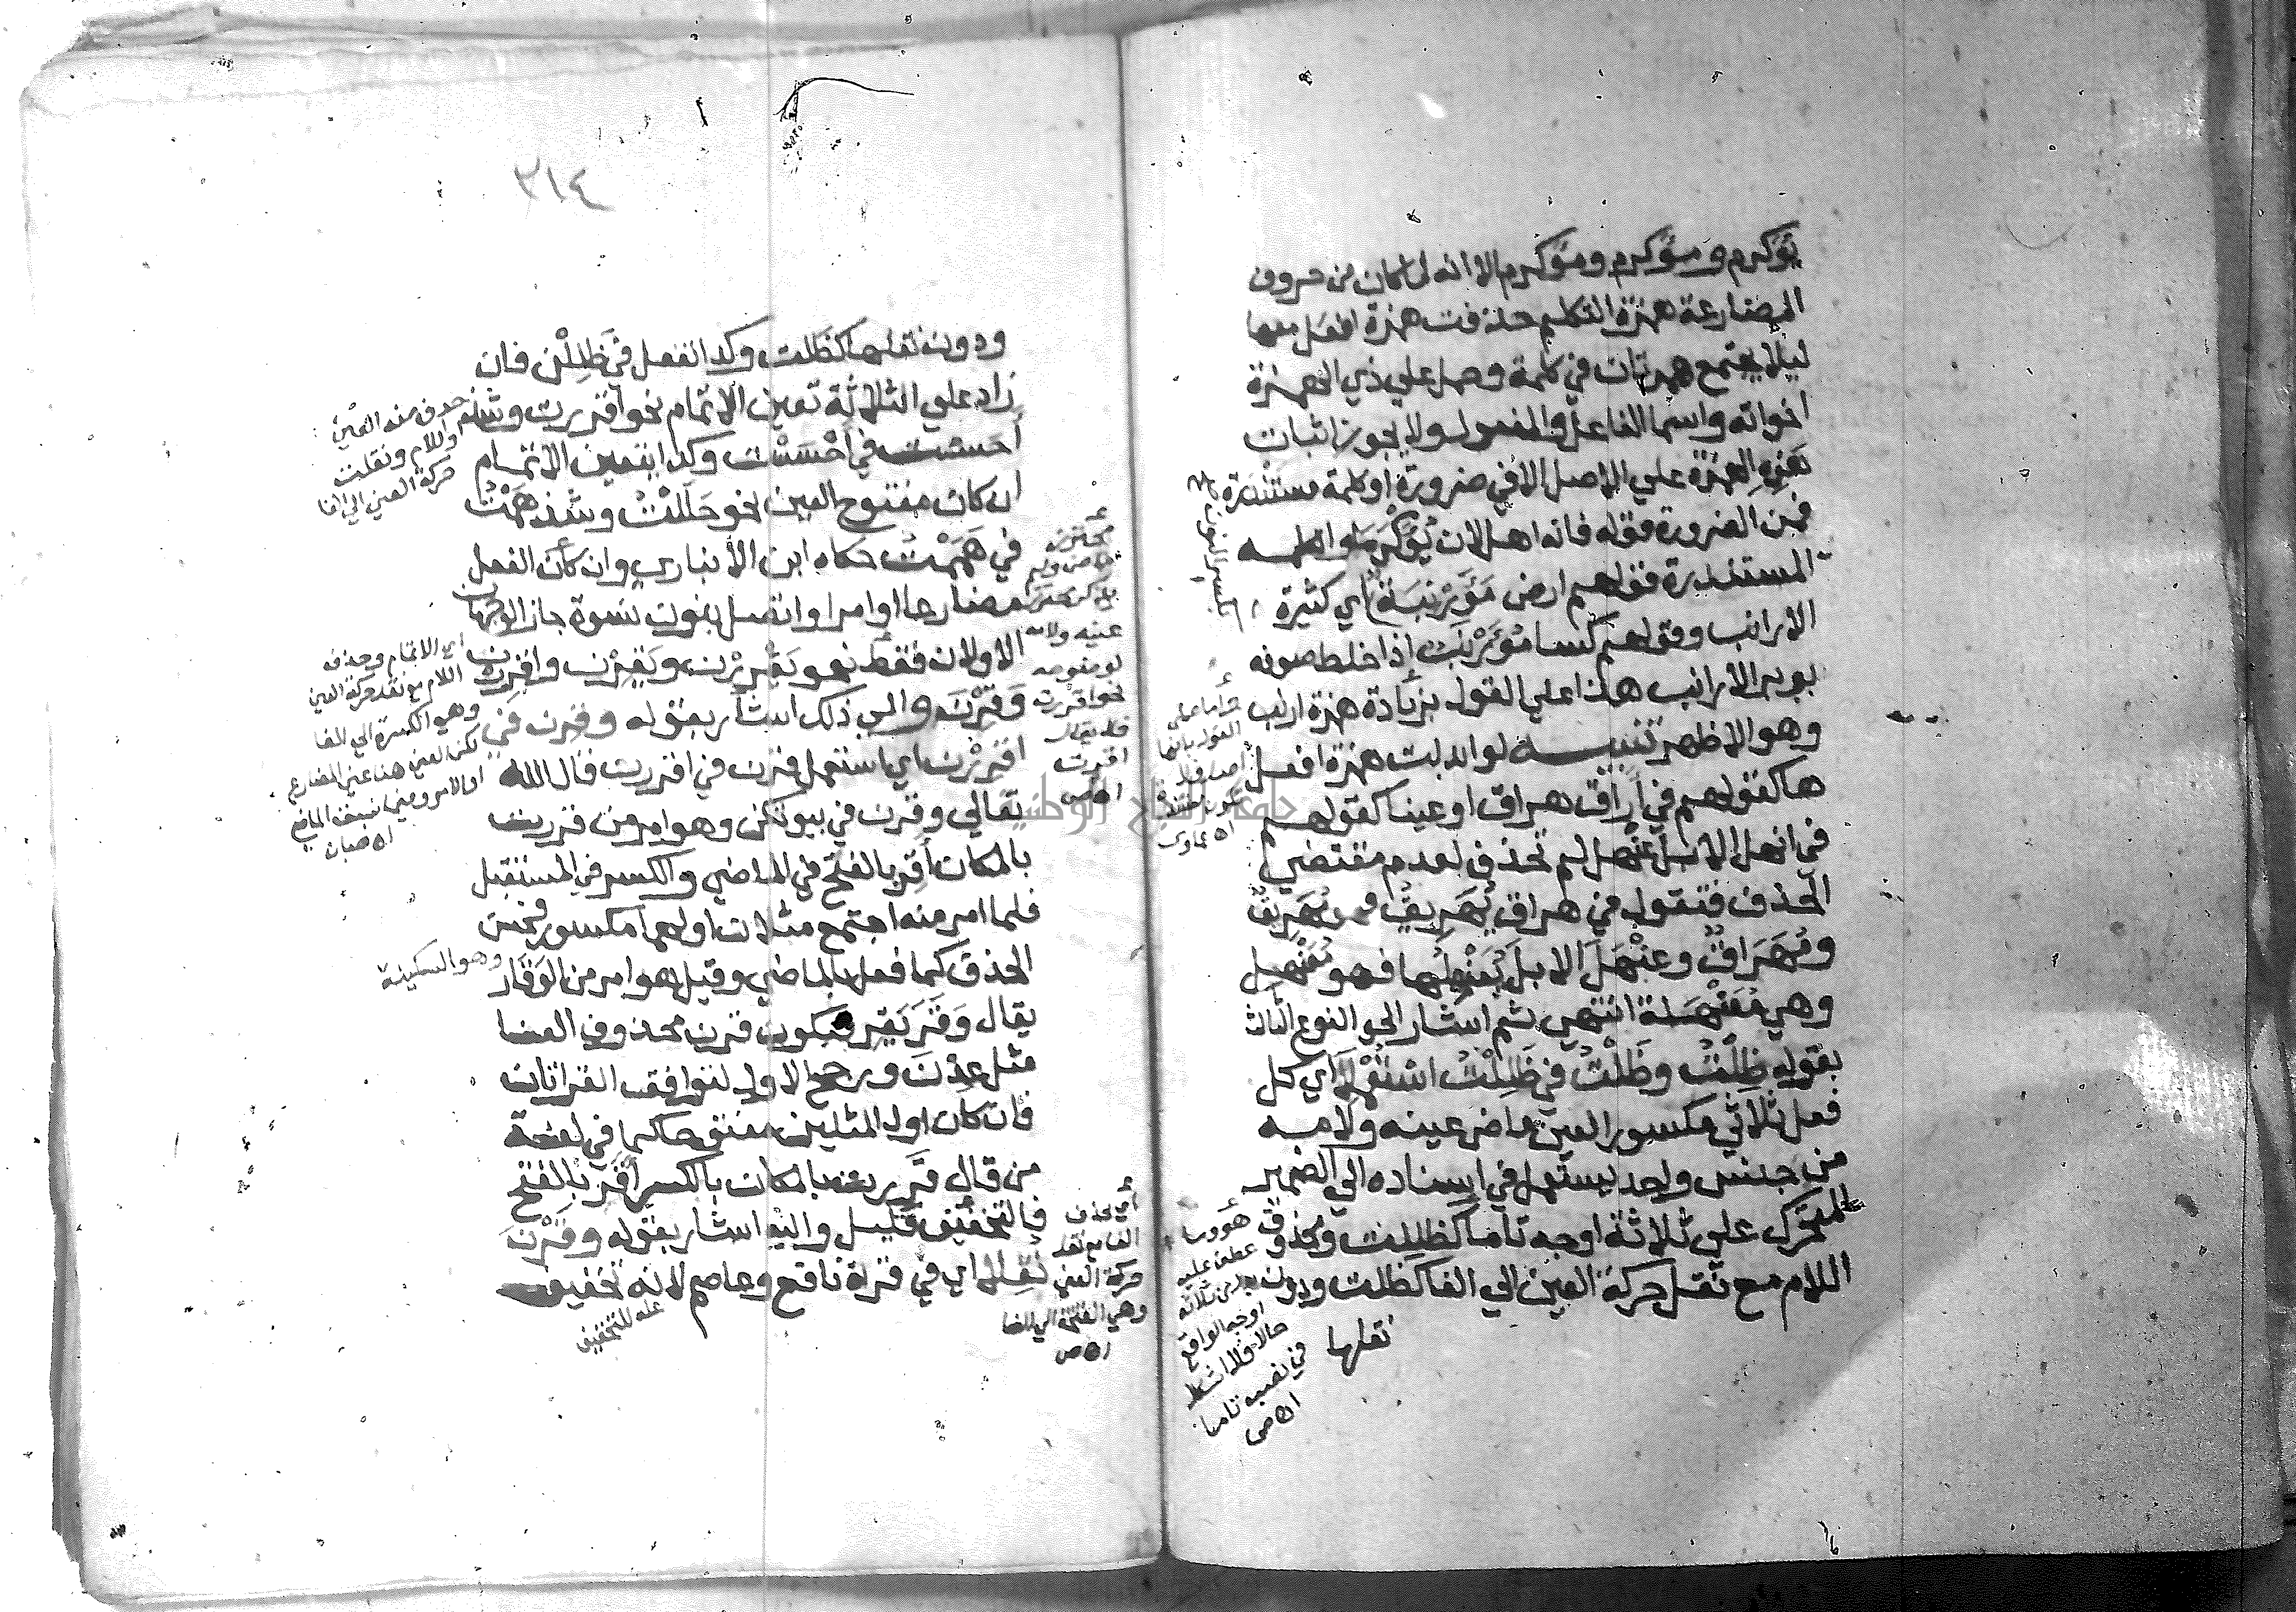 يؤكرم ومؤكرم ومؤكرم الا انه لما كان من حروف
المضارعة همزة التكلم حذفت همزة افعل معها
ليلا يجتمع همزتان في كلمة وحمل علي ذي الهمزة
اخواته واسما الفاعل والمفعول ولا يجوز اثبات
هذه الهمزة علي الاصل الا في ضرورة او كلمة مستندرة
فمن الضرورة قوله فانه اهل لان يؤكرما والكلمة
المستندرة قولهم ارض مؤرنبة اي كثيرة
الارانب وقولهم كسا مؤرنب اذا خلط صوفه
بوبر الارانب هذا علي القول بزيادة همزة ارنب
وهو الاظهر تنبيه لو ابدلت همزة افعل
ها كقولهم في اراق هراق او عينا كقولهم
في انهل الابل عنهل لم تحذف لعدم مقتضي
الحذف فتقول في هراق يهريق فهو مهريق
ومهراق وعنهل الابل يعنهلها فهو معنهل
وهي معنهلة انتهي ثم اشار الي النوع الثالث
بقوله ظلت وظلت في ظللت استعملا اي كل
فعل ثلاثي مكسور العين ماض عينه ولامه
من جنس واحد يستعمل في اسناده الي الضمير
المتحرك علي ثلاثة اوجه تاما كظللت ومحذوف
اللام مع نقل حركة العين الي الفا كظلت ودون
نقلها
واما علي
القول بانها
تكون
هو وما
عطف عليه
بدل من ثلاثة
اوجه الواقع
حالا فلا اشكال
في نصبه تاما
اه ص
٣١٤
ودون نقلها كظلت وكذا تفعل في ظللن فان
زاد علي الثلاثة تعين الاتمام نحو اقررت وشذ
احست في احسست وكذا يتعين الاتمام
ان كان مفتوح العين نحو حللت وشذ همت
في هممت حكاه ابن الانباري وان كان الفعل
مضارعا او امرا واتصل بنون نسوة جاز الوجهان
الاولان فقط نحو يقررن ويقرن واقررن
وقرن والي ذلك اشار بقوله وقرن في
اقررن اي استعمل قرن في اقررن قال الله
تعالي وقرن في بيوتكن وهو امر من قررت
بالمكان اقر بالفتح في الماضي والكسر في المستقبل
فلما امر منه اجتمع مثلان اولهما مكسور فحسن
الحذف كما فعل بالماضي وقيل هو امر من الوقار
يقال وقر يقر فيكون قرن محذوف الفا
مثل عدن ورجح الاول لتوافق القراتان
فان كان اول المثلين مفتوحا كما في لغة
من قال قررت بالمكان بالكسر اقر بالفتح
فالتخفيف قليل واليه اشار بقوله وقرن
نقلا اي في قراة نافع وعاصم لانه تخفيف
حذف منه العين
او اللام ونقلت
حركة العين الي الفا
اي الاتمام وحذف
اللام مع نقل حركة العين
وهو الكسرة الي الفا
لكن العين هنا عين المضارع
او الامر وفيما سبق الماضي
اه صبان
وهو السكينة
عينه ولامه
نحو اقررت
فلا يقال
اقرت
اه ص
اي بحذف
الفا مع نقل
حركة العين
وهي الفتحة الي الفا
اه ص
علة للتخفيف
جامعة النجاح الوطنية